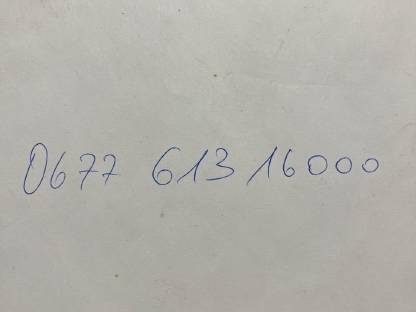 0677 613 16000